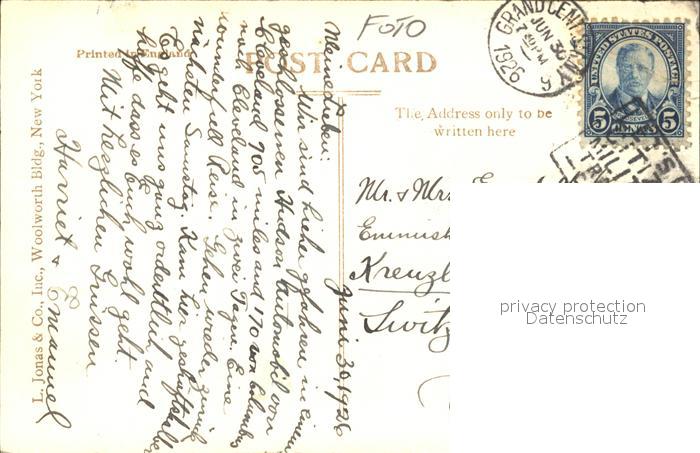 FOTO
GRAND CEN
JUN 30
7 30PM
1926
UNITED STATES POSTAGE
5 CENTS 5
Printed in England
POST CARD
The Address only to be
written here
L. Jonas & Co., Inc., Woolworth Bldg., New York
Juni 30, 1926
Meine Lieben:
Wir sind hieher gefahren in einem
geschlossenen Hudson Automobil von
Cleveland 705 miles and 170 von Columbus
nach Cleveland in zwei Tagen. Eine
wundervoll Reise. Gehen wieder zurück
nächsten Samstag. Kam hier geschäftshalber
Es geht uns ganz ordentlich und
hoffe dass es Euch wohl geht.
Mit herzlichen Grüssen
Harriet & Emanuel
Mr. & Mrs.
Emmish
Kreuzl
Switz
privacy protection
Datenschutz